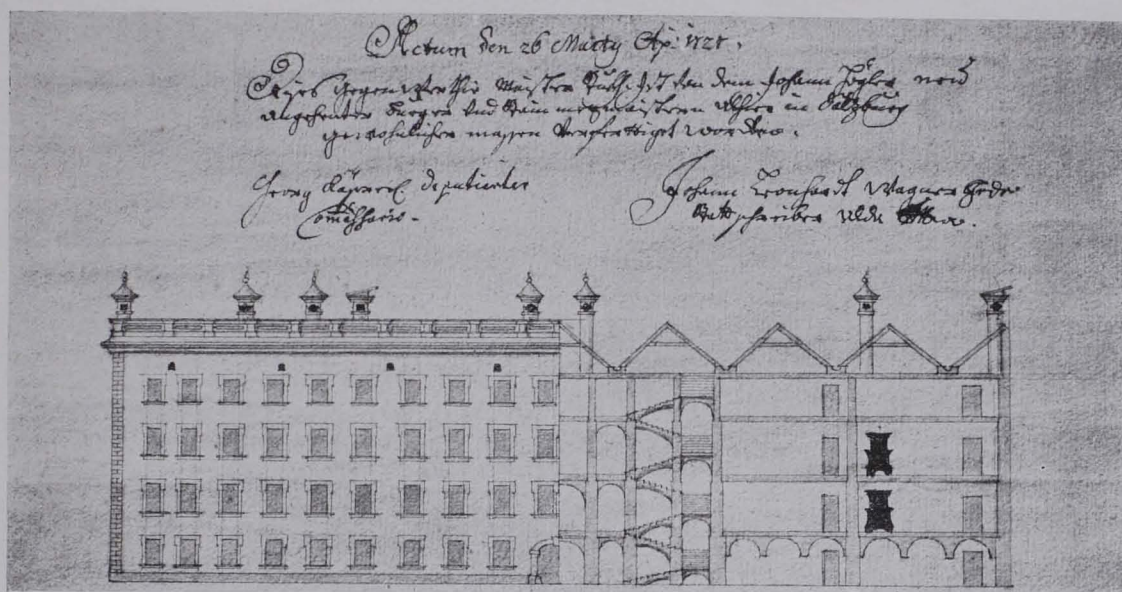 Actum den 26 Marty Ao: 1721.
Dises gegenwerthig Maister Stukh ist von dem Johann Högler neu
angehenten Burger und Stain mezmaistern Alhier in Salzburg
gewohnlicher massen verferttiget worden.
Georg deputierter
Commissario.
Johann Leonhardt Wagner
Stattschreiber